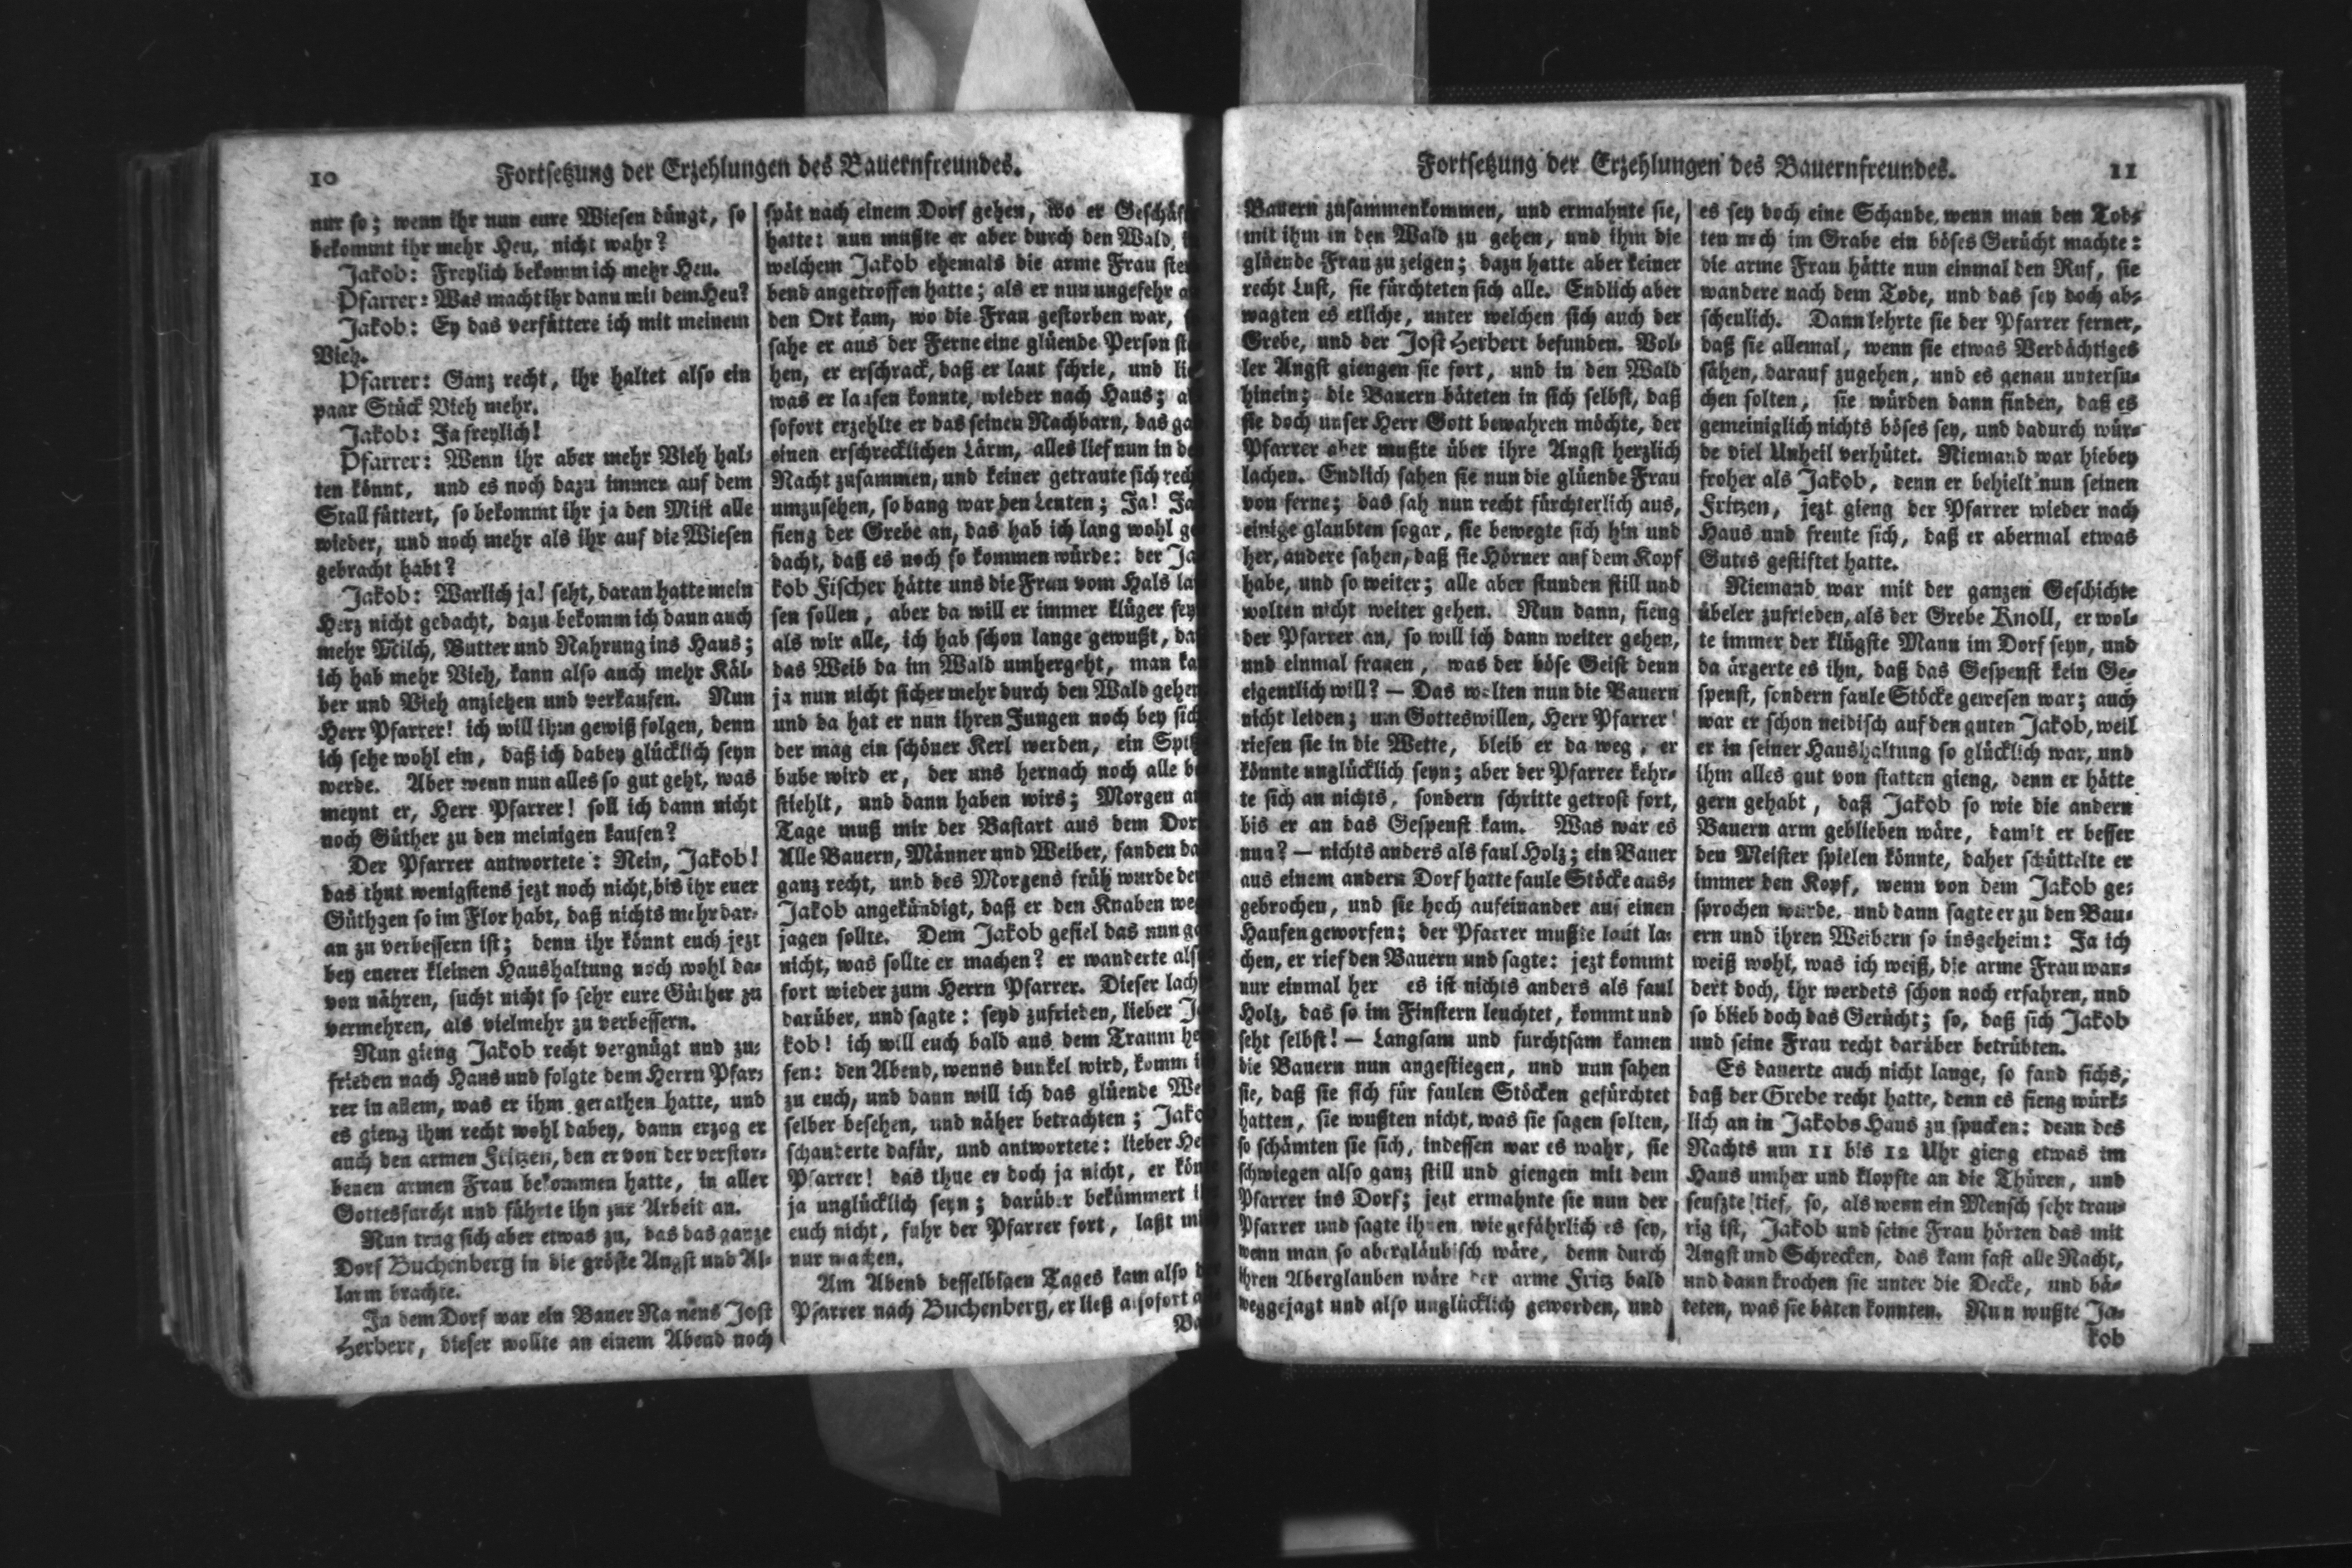 10
Fortsetzung der Erzehlungen des Bauernfreundes.
nur so; wenn ihr nun eure Wiesen düngt, so
bekommt ihr mehr Heu, nicht wahr?
Jakob: Freylich bekomm ich mehr Heu.
Pfarrer: Was macht ihr dann mit dem Heu?
Jakob: Ey das verfüttere ich mit meinem
Vieh.
Pfarrer: Ganz recht, ihr haltet also ein
paar Stück Vieh mehr.
Jakob: Ja freylich!
Pfarrer: Wenn ihr aber mehr Vieh hal-
ten könnt, und es noch dazu immer auf dem
Stall füttert, so bekommt ihr ja den Mist alle
wieder, und noch mehr als ihr auf die Wiesen
gebracht habt?
Jakob: Warlich ja! seht, daran hatte mein
Herz nicht gedacht, dazu bekomm ich dann auch
mehr Milch, Butter und Nahrung ins Haus;
ich hab mehr Vieh, kann also auch mehr Käl-
ber und Vieh anziehen und verkaufen. Nun
Herr Pfarrer! ich will ihm gewiß folgen, denn
ich sehe wohl ein, daß ich dabey glücklich seyn
werde. Aber wenn nun alles so gut geht, was
meynt er, Herr Pfarrer! soll ich dann nicht
noch Güther zu den meinigen kaufen?
Der Pfarrer antwortete: Nein, Jakob!
das thut wenigstens jezt noch nicht, bis ihr euer
Güthgen so im Flor habt, daß nichts mehr dar-
an zu verbessern ist; denn ihr könnt euch jezt
bey euerer kleinen Haushaltung noch wohl da-
von nähren, sucht nicht so sehr eure Güther zu
vermehren, als vielmehr zu verbessern.
Nun gieng Jakob recht vergnügt und zu-
frieden nach Haus und folgte dem Herrn Pfar-
rer in allem, was er ihm gerathen hatte, und
es gieng ihm recht wohl dabey, dann erzog er
auch den armen Fritzen, den er von der verstor-
benen armen Frau bekommen hatte, in aller
Gottesfurcht und führte ihn zur Arbeit an.
Nun trug sich aber etwas zu, das das ganze
Dorf Buchenberg in die gröste Angst und Al-
larm brachte.
In dem Dorf war ein Bauer Namens Jost
Herbert, dieser wollte an einem Abend noch
spät nach einem Dorf gehen, wo er Geschäf
hatte: nun mußte er aber durch den Wald,
welchem Jakob ehemals die arme Frau ster
bend angetroffen hatte; als er nun ungefehr a
den Ort kam, wo die Frau gestorben war, s
sahe er aus der Ferne eine glüende Person ste
hen, er erschrack, daß er laut schrie, und lie
was er laufen konnte, wieder nach Haus; al
sofort erzehlte er das seinen Nachbarn, das ga
einen erschrecklichen Lärm, alles lief nun in de
Nacht zusammen, und keiner getraute sich rech
umzusehen, so bang war den Leuten; Ja! Ja
fieng der Grebe an, das hab ich lang wohl ge
dacht, daß es noch so kommen würde: der Ja
kob Fischer hätte uns die Frau vom Hals la
sen sollen, aber da will er immer klüger sey
als wir alle, ich hab schon lange gewußt, da
das Weib da im Wald umhergeht, man ka
ja nun nicht sicher mehr durch den Wald gehen
und da hat er nun ihren Jungen noch bey sich
der mag ein schöner Kerl werden, ein Spitz
bube wird er, der uns hernach noch alle be
stiehlt, und dann haben wirs; Morgen am
Tage muß mir der Bastart aus dem Dor
Alle Bauern, Männer und Weiber, fanden da
ganz recht, und des Morgens früh wurde dem
Jakob angekündigt, daß er den Knaben weg
jagen sollte. Dem Jakob gefiel das nun ga
nicht, was sollte er machen? er wanderte also
fort wieder zum Herrn Pfarrer. Dieser lach
darüber, und sagte: seyd zufrieden, lieber Ja
kob! ich will euch bald aus dem Traum hel
fen: den Abend, wenns dunkel wird, komm i
zu euch, und dann will ich das glüende Wei
selber besehen, und näher betrachten; Jako
schauderte dafür, und antwortete: lieber Her
Pfarrer! das thue er doch ja nicht, er kön
ja unglücklich seyn; darüber bekümmert i
euch nicht, fuhr der Pfarrer fort, laßt mi
nur machen.
Am Abend desselbigen Tages kam also d
Pfarrer nach Buchenberg, er ließ alsofort
Ba
Fortsetzung der Erzehlungen des Bauernfreundes.
11
Bauern zusammenkommen, und ermahnte sie,
mit ihm in den Wald zu gehen, und ihm die
glüende Frau zu zeigen; dazu hatte aber keiner
recht Lust, sie fürchteten sich alle. Endlich aber
wagten es etliche, unter welchen sich auch der
Grebe, und der Jost Herbert befunden. Vol-
ler Angst giengen sie fort, und in den Wald
hinein; die Bauern bäteten in sich selbst, daß
sie doch unser Herr Gott bewahren möchte, der
Pfarrer aber mußte über ihre Angst herzlich
lachen. Endlich sahen sie nun die glüende Frau
von ferne; das sah nun recht fürchterlich aus,
einige glaubten sogar, sie bewegte sich hin und
her, andere sahen, daß sie Hörner auf dem Kopf
habe, und so weiter; alle aber stunden still und
wolten nicht weiter gehen. Nun dann, fieng
der Pfarrer an, so will ich dann weiter gehen,
und einmal fragen, was der böse Geist denn
eigentlich will? — Das wolten nun die Bauern
nicht leiden; um Gotteswillen, Herr Pfarrer!
riefen sie in die Wette, bleib er da weg, er
könnte unglücklich seyn; aber der Pfarrer kehr-
te sich an nichts, sondern schritte getrost fort,
bis er an das Gespenst kam. Was war es
nun? — nichts anders als faul Holz; ein Bauer
aus einem andern Dorf hatte faule Stöcke aus-
gebrochen, und sie hoch aufeinander auf einen
Haufen geworfen; der Pfarrer mußte laut la-
chen, er rief den Bauern und sagte: jezt kommt
nur einmal her es ist nichts anders als faul
Holz, das so im Finstern leuchtet, kommt und
seht selbst! — Langsam und furchtsam kamen
die Bauern nun angestiegen, und nun sahen
sie, daß sie sich für faulen Stöcken gefürchtet
hatten, sie wußten nicht, was sie sagen solten,
so schämten sie sich, indessen war es wahr, sie
schwiegen also ganz still und giengen mit dem
Pfarrer ins Dorf; jezt ermahnte sie nun der
Pfarrer und sagte ihnen wie gefährlich es sey,
wenn man so abergläubisch wäre, denn durch
ihren Aberglauben wäre der arme Fritz bald
weggejagt und also unglücklich geworden, und
es sey doch eine Schande, wenn man den Tod-
ten noch im Grabe ein böses Gerücht machte:
die arme Frau hätte nun einmal den Ruf, sie
wandere nach dem Tode, und das sey doch ab-
scheulich. Dann lehrte sie der Pfarrer ferner,
daß sie allemal, wenn sie etwas Verdächtiges
sähen, darauf zugehen, und es genau untersu-
chen solten, sie würden dann finden, daß es
gemeiniglich nichts böses sey, und dadurch wür-
de viel Unheil verhütet. Niemand war hiebey
froher als Jakob, denn er behielt nun seinen
Fritzen, jezt gieng der Pfarrer wieder nach
Haus und freute sich, daß er abermal etwas
Gutes gestiftet hatte.
Niemand war mit der ganzen Geschichte
übeler zufrieden, als der Grebe Knoll, er wol-
te immer der klügste Mann im Dorf seyn, und
da ärgerte es ihn, daß das Gespenst kein Ge-
spenst, sondern faule Stöcke gewesen war; auch
war er schon neidisch auf den guten Jakob, weil
er in seiner Haushaltung so glücklich war, und
ihm alles gut von statten gieng, denn er hätte
gern gehabt, daß Jakob so wie die andern
Bauern arm geblieben wäre, damit er besser
den Meister spielen könnte, daher schüttelte er
immer den Kopf, wenn von dem Jakob ge-
sprochen wurde, und dann sagte er zu den Bau-
ern und ihren Weibern so insgeheim: Ja ich
weiß wohl, was ich weiß, die arme Frau wan-
dert doch, ihr werdets schon noch erfahren, und
so blieb doch das Gerücht; so, daß sich Jakob
und seine Frau recht darüber betrübten.
Es dauerte auch nicht lange, so fand sichs,
daß der Grebe recht hatte, denn es fieng würk-
lich an in Jakobs Haus zu spucken: denn des
Nachts um 11 bis 12 Uhr gieng etwas im
Haus umher und klopfte an die Thüren, und
seufzte tief, so, als wenn ein Mensch sehr trau-
rig ist, Jakob und seine Frau hörten das mit
Angst und Schrecken, das kam fast alle Nacht,
und dann krochen sie unter die Decke, und bä-
teten, was sie bäten konnten. Nun wußte Ja-
kob